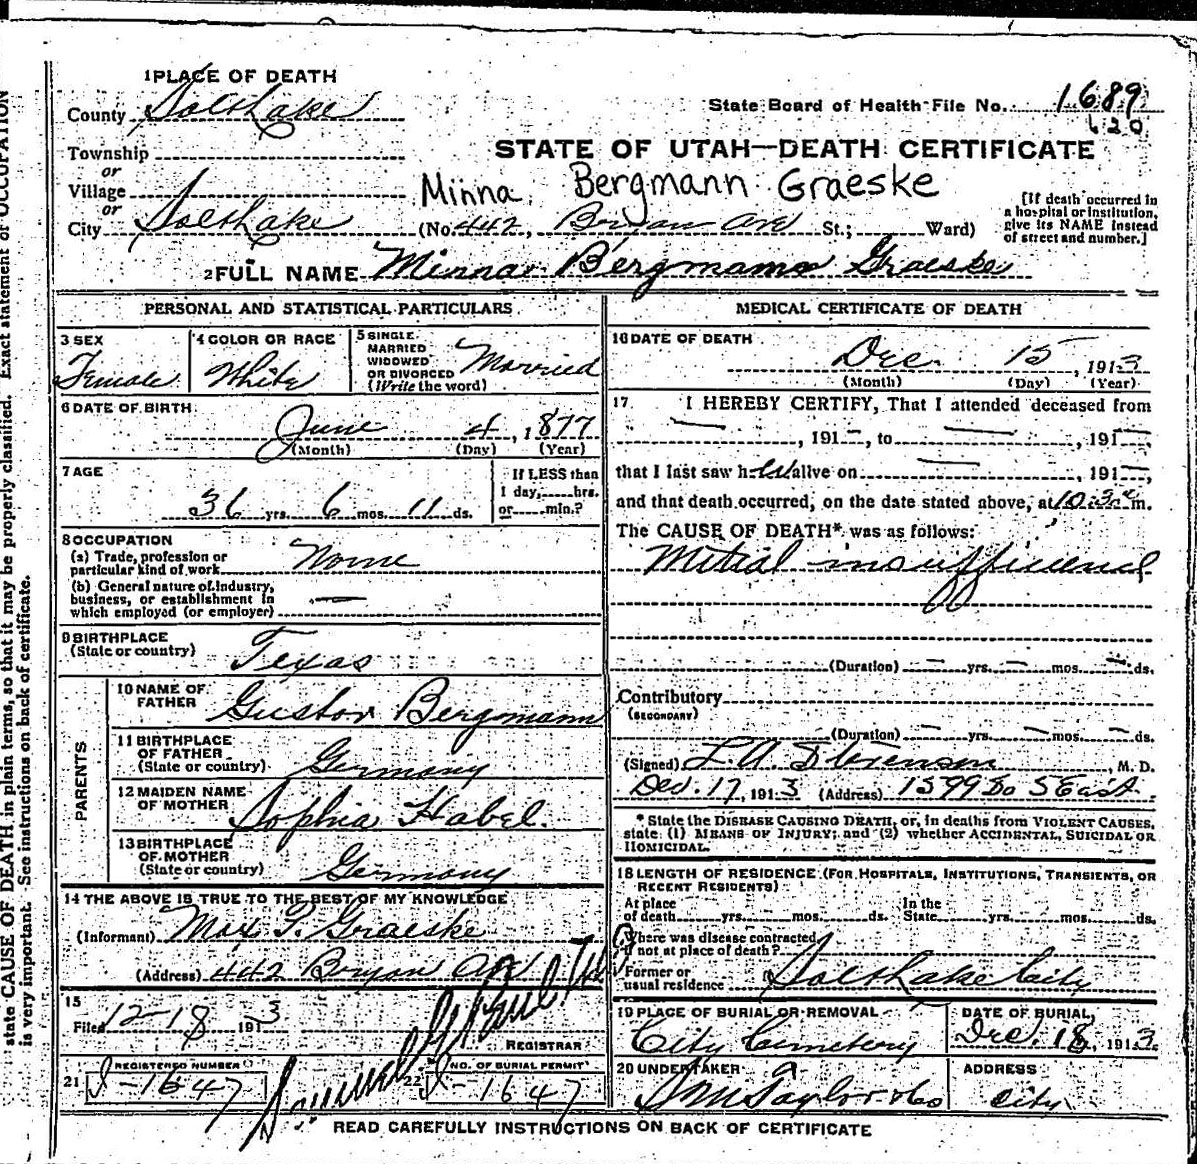 1 PLACE OF DEATH
County Salt Lake
State Board of Health File No. 1689
620
Township
or
Village
or
City Salt Lake
STATE OF UTAH—DEATH CERTIFICATE
Minna Bergmann Graeske
(No. 442, Bryan Ave St.; Ward)
[If death occurred in
a hospital or institution,
give its NAME instead
of street and number.]
2 FULL NAME Minna Bergmann Graeske
PERSONAL AND STATISTICAL PARTICULARS
3 SEX
Female
4 COLOR OR RACE
White
5 SINGLE
MARRIED
WIDOWED
OR DIVORCED
(Write the word)
Married
6 DATE OF BIRTH
June 4, 1877
(Month) (Day) (Year)
7 AGE
36 yrs. 6 mos. 11 ds.
If LESS than
1 day, hrs.
or min.?
8 OCCUPATION
(a) Trade, profession or
particular kind of work None
(b) General nature of industry,
business, or establishment in
which employed (or employer) —
9 BIRTHPLACE
(State or country) Texas
PARENTS
10 NAME OF
FATHER Gustav Bergmann
11 BIRTHPLACE
OF FATHER
(State or country) Germany
12 MAIDEN NAME
OF MOTHER Sophia Habel.
13 BIRTHPLACE
OF MOTHER
(State or country) Germany
14 THE ABOVE IS TRUE TO THE BEST OF MY KNOWLEDGE
(Informant) Max F. Graeske
(Address) 442 Bryan Ave
15
Filed 12-18 1913
REGISTRAR
21 REGISTERED NUMBER
J-1647
22 NO. OF BURIAL PERMIT
J-1647
MEDICAL CERTIFICATE OF DEATH
16 DATE OF DEATH
Dec. 15, 1913
(Month) (Day) (Year)
17 I HEREBY CERTIFY, That I attended deceased from
—, 191—, to —, 191—,
that I last saw her alive on —, 191—,
and that death occurred, on the date stated above, at 10:30 m.
The CAUSE OF DEATH* was as follows:
Mitial insufficiency
(Duration) — yrs. — mos. — ds.
Contributory
(SECONDARY)
(Duration) — yrs. — mos. — ds.
(Signed) L.A. Stevenson, M. D.
Dec. 17, 1913 (Address) 1599 So 5 East.
* State the DISEASE CAUSING DEATH, or, in deaths from VIOLENT CAUSES,
state (1) MEANS OF INJURY; and (2) whether ACCIDENTAL, SUICIDAL OR
HOMICIDAL.
18 LENGTH OF RESIDENCE (FOR HOSPITALS, INSTITUTIONS, TRANSIENTS, OR
RECENT RESIDENTS)
At place
of death yrs. mos. ds.
In the
State yrs. mos. ds.
Where was disease contracted,
if not at place of death?
Former or
usual residence Salt Lake City
19 PLACE OF BURIAL OR REMOVAL
City Cemetery
DATE OF BURIAL,
Dec. 18, 1913
20 UNDERTAKER
S M Taylor & Co
ADDRESS
City
READ CAREFULLY INSTRUCTIONS ON BACK OF CERTIFICATE
state CAUSE OF DEATH in plain terms, so that it may be properly classified. Exact statement of OCCUPATION
is very important. See instructions on back of certificate.